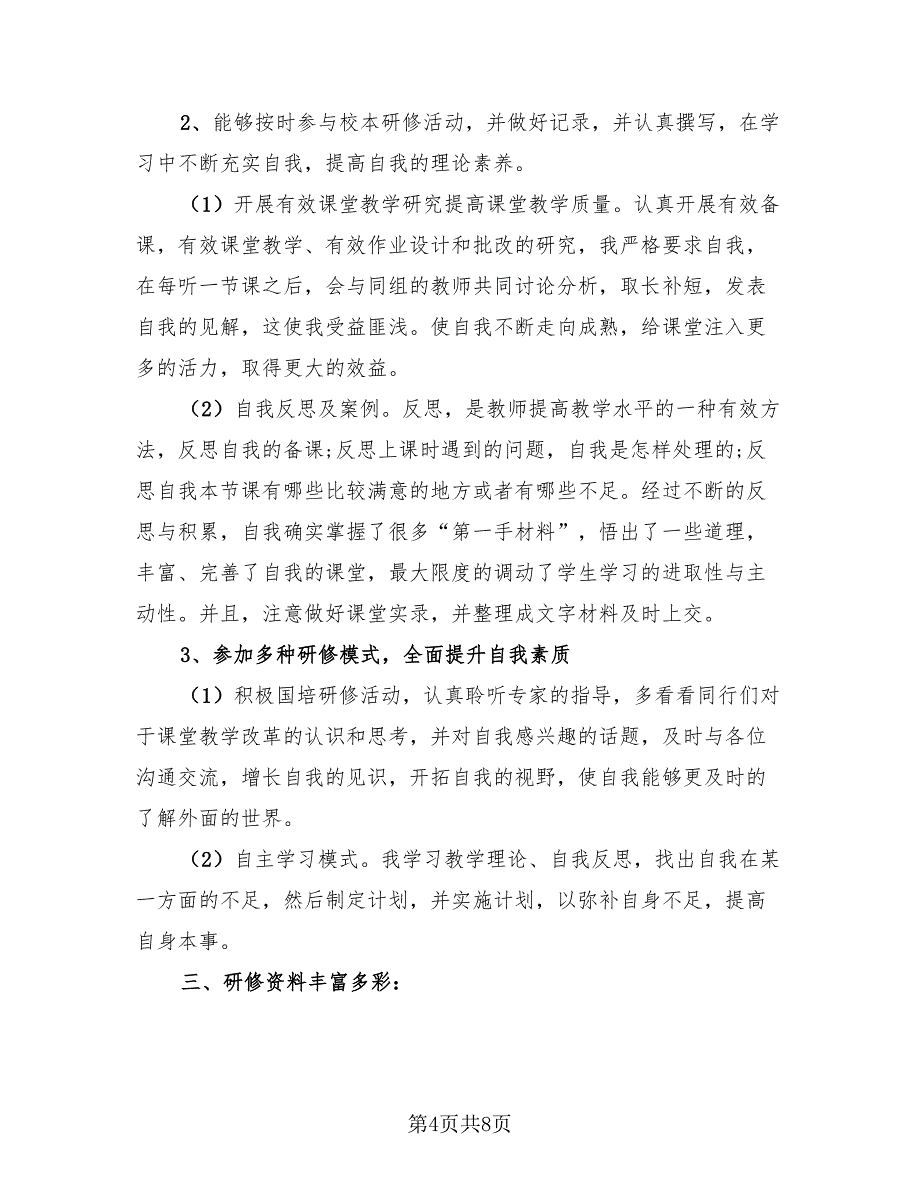 2、能够按时参与校本研修活动，并做好记录，并认真撰写，在学
习中不断充实自我，提高自我的理论素养。
（1）开展有效课堂教学研究提高课堂教学质量。认真开展有效备
课，有效课堂教学、有效作业设计和批改的研究，我严格要求自我，
在每听一节课之后，会与同组的教师共同讨论分析，取长补短，发表
自我的见解，这使我受益匪浅。使自我不断走向成熟，给课堂注入更
多的活力，取得更大的效益。
（2）自我反思及案例。反思，是教师提高教学水平的一种有效方
法，反思自我的备课;反思上课时遇到的问题，自我是怎样处理的;反
思自我本节课有哪些比较满意的地方或者有哪些不足。经过不断的反
思与积累，自我确实掌握了很多“第一手材料”，悟出了一些道理，
丰富、完善了自我的课堂，最大限度的调动了学生学习的进取性与主
动性。并且，注意做好课堂实录，并整理成文字材料及时上交。
3、参加多种研修模式，全面提升自我素质
（1）积极国培研修活动，认真聆听专家的指导，多看看同行们对
于课堂教学改革的认识和思考，并对自我感兴趣的话题，及时与各位
沟通交流，增长自我的见识，开拓自我的视野，使自我能够更及时的
了解外面的世界。
（2）自主学习模式。我学习教学理论、自我反思，找出自我在某
一方面的不足，然后制定计划，并实施计划，以弥补自身不足，提高
自身本事。
三、研修资料丰富多彩：
第4页共8页